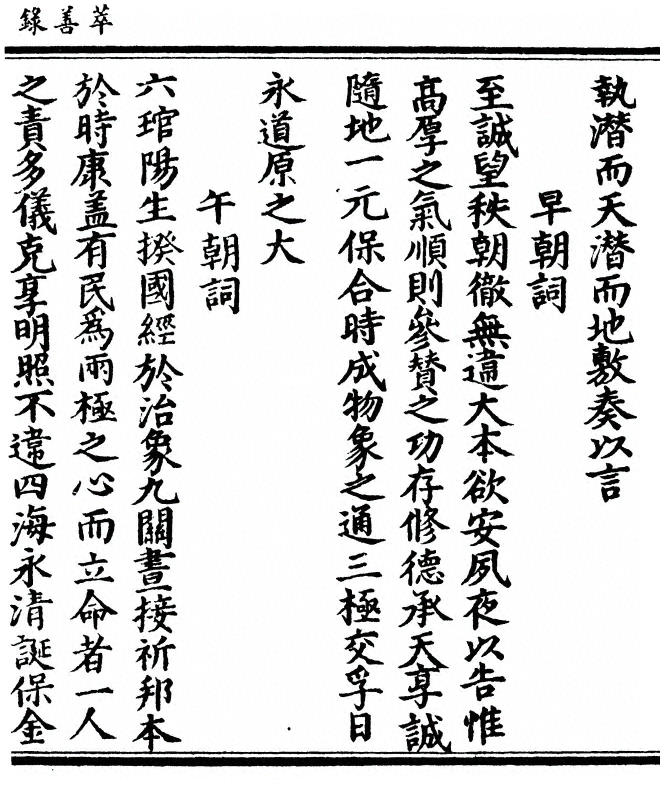 萃善錄
執潛而天潛而地敷奏以言
早朝詞
至誠望秩朝徹無違大本欲安夙夜以告惟
高厚之氣順則參贊之功存修德承天享誠
隨地一元保合時成物象之通三極交孚日
永道原之大
午朝詞
六琯陽生揆國經於治象九關晝接祈邦本
於時康蓋有民為兩極之心而立命者一人
之責多儀克享明照不違四海永清誕保金